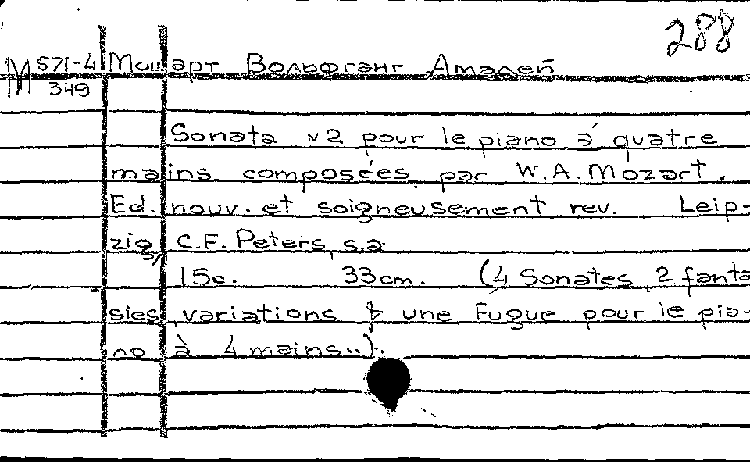 288
М 571-4 Моцарт Вольфганг Амадей
349
Sonata N2 pour le piano à quatre
mains composées par W.A. Mozart.
Ed. nouv. et soigneusement rev. Leip-
zig, C.F. Peters, s.a.
15c. 33cm. (4 Sonates, 2 fanta
sies, variations & une Fugue pour le pia-
no à 4 mains..).